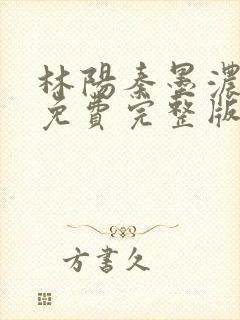 林陽秦墨濃
免費完整版
方書久